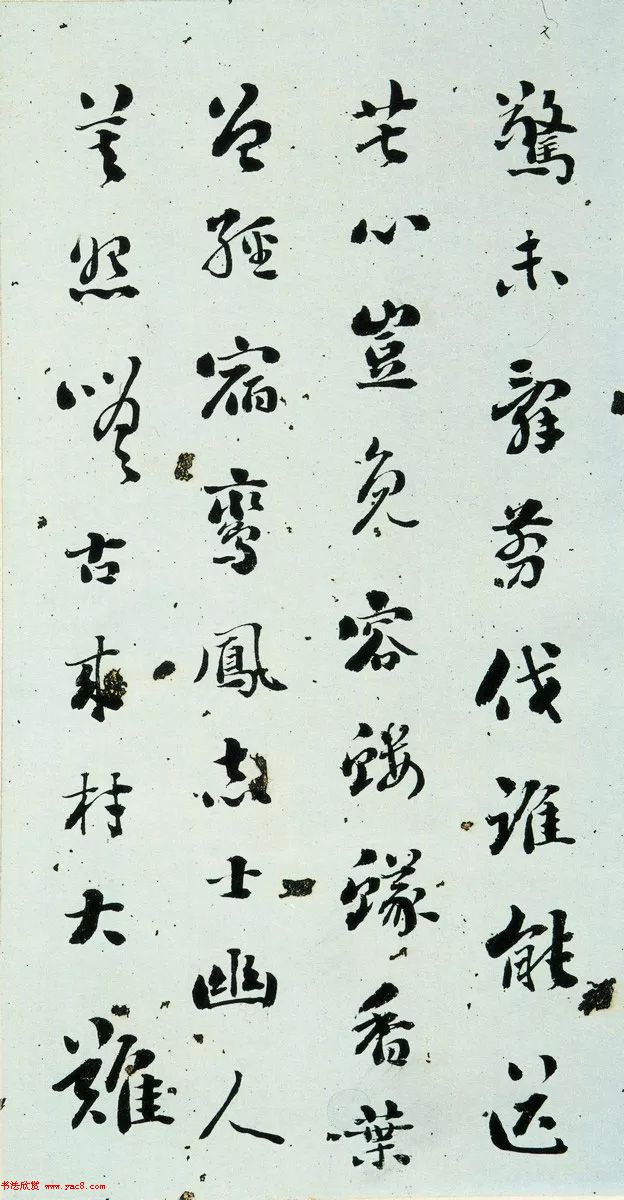 驚未辭剪伐誰能送
苦心豈免容螻蟻香葉
曾經宿鸞鳳志士幽人
莫怨嗟古來材大難
书法欣赏 www.yac8.com